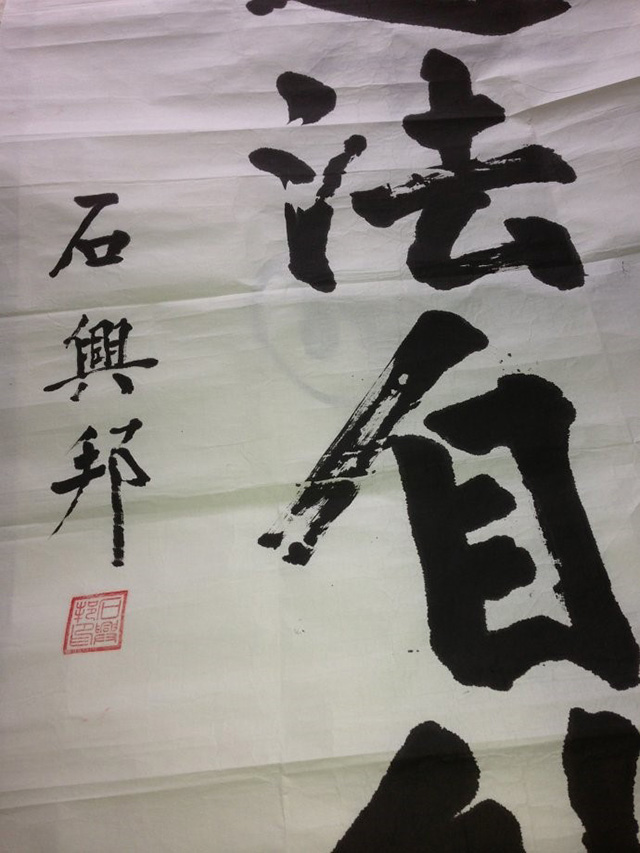 法自
石興邦
石興邦印